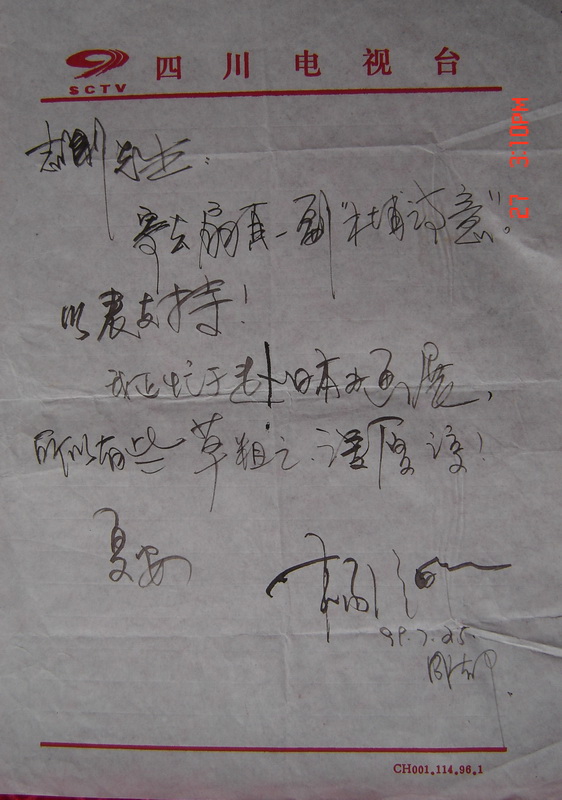 SCTV 四川电视台
志刚先生：
寄去扇面一副“杜甫诗意”。
以表支持！
我正忙于赴日本办画展，
所以有些草粗之 请原谅！
夏安
99.7.25.
27 3:10PM
CH001.114.96.1